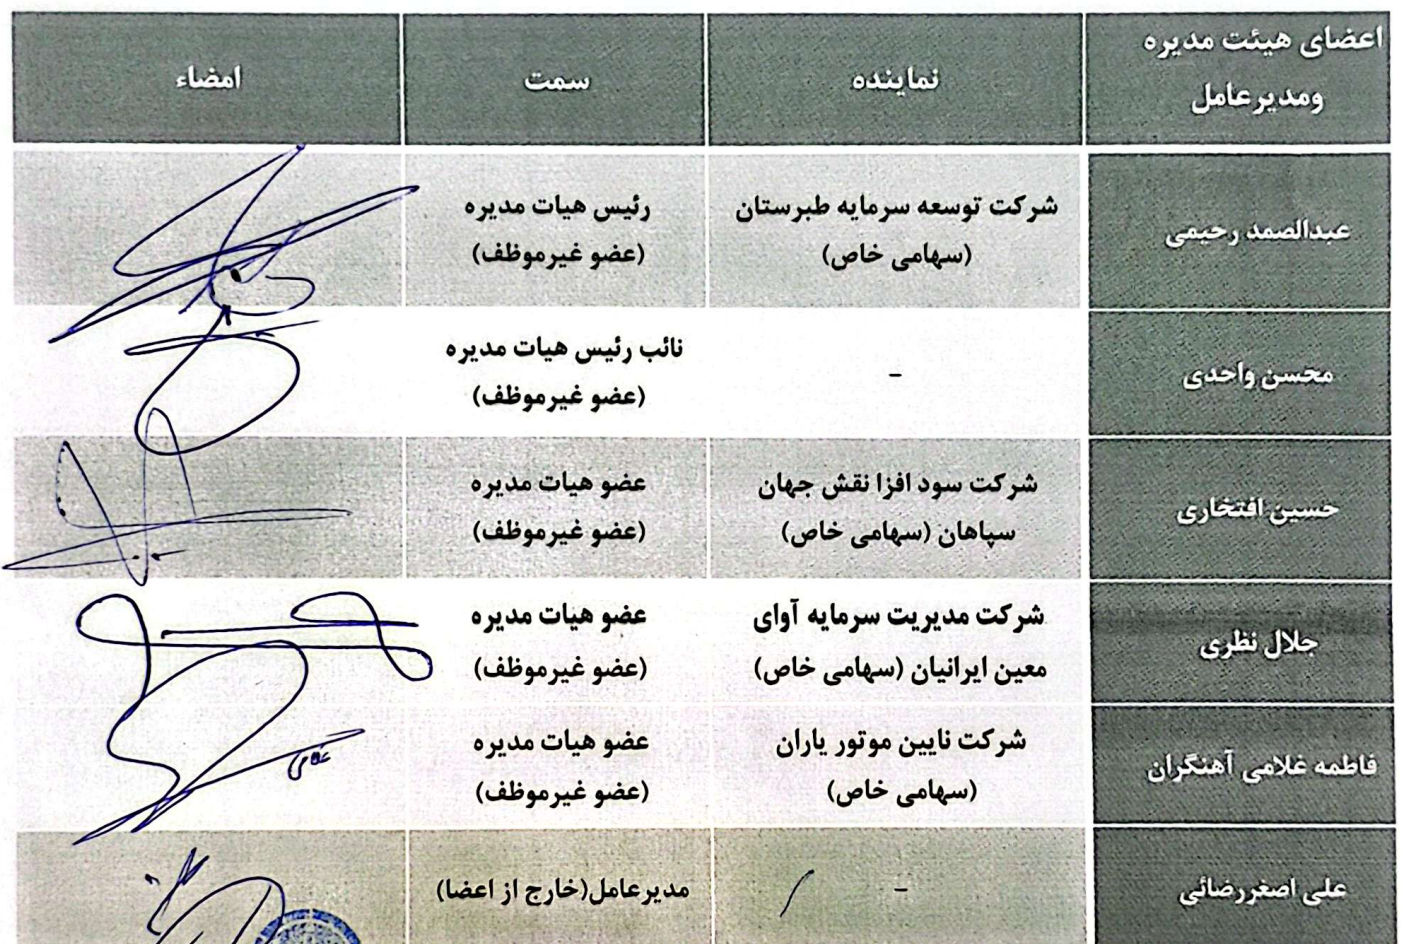 اعضای هیئت مدیره
ومدیرعامل
نماینده
سمت
امضاء
عبدالصمد رحیمی
شرکت توسعه سرمایه طبرستان
(سهامی خاص)
رئیس هیات مدیره
(عضو غیرموظف)
محسن واحدی
-
نائب رئیس هیات مدیره
(عضو غیرموظف)
حسین افتخاری
شرکت سود افزا نقش جهان
سپاهان (سهامی خاص)
عضو هیات مدیره
(عضو غیرموظف)
جلال نظری
شرکت مدیریت سرمایه آوای
معین ایرانیان (سهامی خاص)
عضو هیات مدیره
(عضو غیرموظف)
فاطمه غلامی آهنگران
شرکت نایین موتور یاران
(سهامی خاص)
عضو هیات مدیره
(عضو غیرموظف)
غلامی
علی اصغررضائی
-
مدیرعامل(خارج از اعضا)